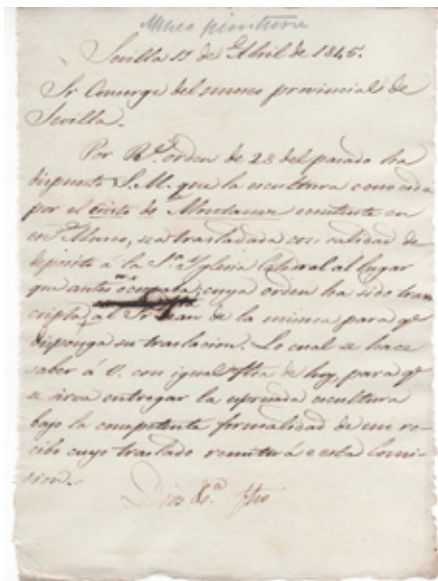 Museo pinturas
Sevilla 17 de Abril de 1845.
Sr Conserge del museo provincial de
Sevilla.
Por Rl. orden de 28 del pasado ha
dispuesto S.M. que la escultura conocida
por el Cristo de Montañes existente en
ese Museo, sea trasladada con calidad de
deposito á la Sta. Yglesia Catedral al lugar
que antes ocupaba; cuya orden ha sido tran
cripta al Sr Dean de la misma para qe
disponga su traslacion. Lo cual se hace
saber á V. con igual fha de hoy, para qe
se sirva entregar la espresada escultura
bajo la competente formalidad de un re-
cibo cuyo traslado remitirá á esta Comi-
sion.
Dios &a. fho